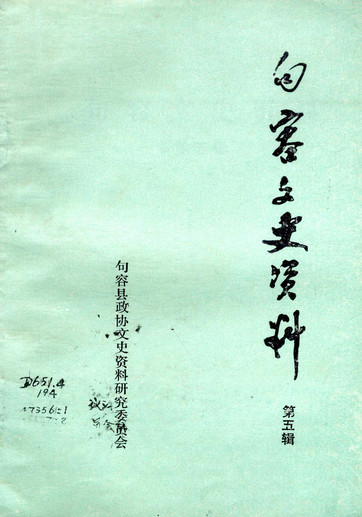 句容文史资料
第五辑
句容县政协文史资料研究委员会
D651.4
194